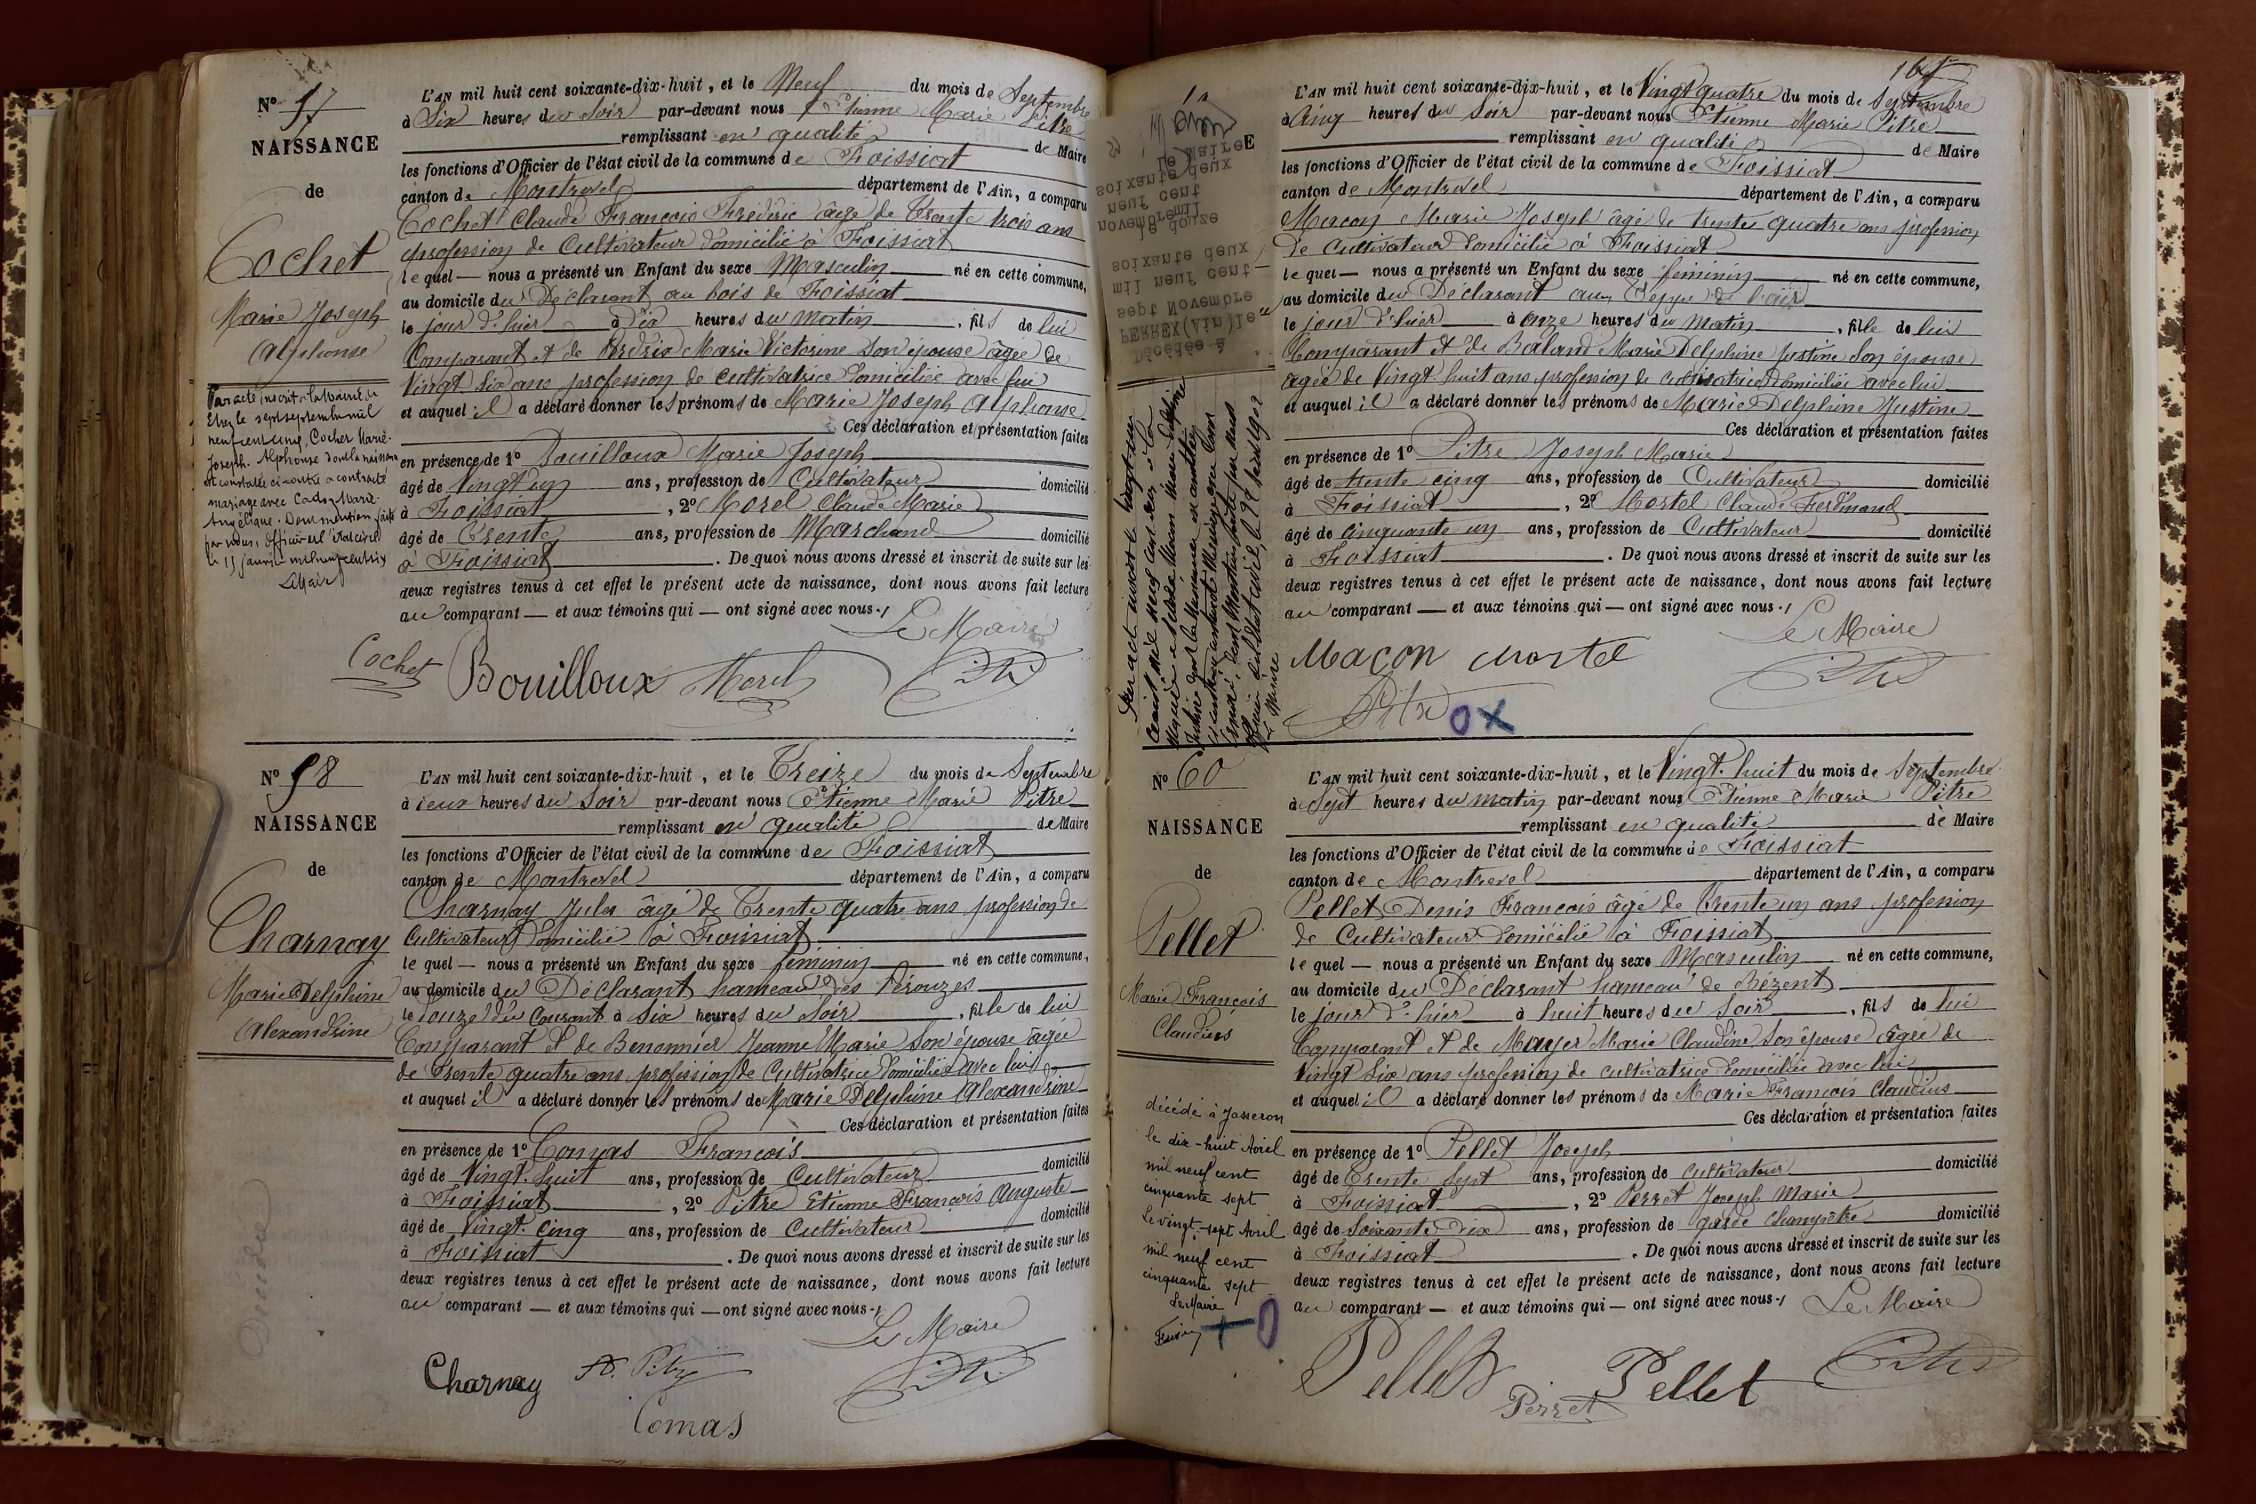 Nº 57
NAISSANCE
de
Cochet
Marie Joseph
Alphonse
Par acte inscrit à la Mairie de
Etrez le sept septembre mil
neuf cent cinq, Cochet Marie-
Joseph-Alphonse dont la naissance
est constatée ci-contre a contracté
mariage avec Cadoz Marie-
Angélique. Dont mention faite
par nous, officier de l'état civil
le 11 janvier mil neuf cent six
Le Maire
L'AN mil huit cent soixante-dix-huit, et le Neuf du mois de Septembre
à Six heures du Soir par-devant nous Etienne Marie Pitre
remplissant en qualité de Maire
les fonctions d'Officier de l'état civil de la commune de Foissiat
canton de Montrevel département de l'Ain, a comparu
Cochet Claude François Frédéric âgé de Trente trois ans
profession de Cultivateur domicilié à Foissiat
lequel — nous a présenté un Enfant du sexe Masculin né en cette commune,
au domicile du Déclarant au bois de Foissiat
le jour d'hier à Dix heures du Matin, fils de lui
Comparant et de Marie Victorine son épouse âgée de
Vingt six ans profession de cultivatrice domiciliée avec lui
et auquel il a déclaré donner les prénoms de Marie Joseph Alphonse
Ces déclaration et présentation faites
en présence de 1º Bouilloux Marie Joseph
âgé de Vingt un ans, profession de Cultivateur domicilié
à Foissiat, 2º Morel Claude Marie
âgé de Trente ans, profession de Marchand domicilié
à Foissiat. De quoi nous avons dressé et inscrit de suite sur les
deux registres tenus à cet effet le présent acte de naissance, dont nous avons fait lecture
au comparant — et aux témoins qui — ont signé avec nous./
Le Maire
Cochet Bouilloux Morel Pitre
Nº 58
NAISSANCE
de
Charnay
Marie Delphine
Alexandrine
L'AN mil huit cent soixante-dix-huit, et le Treize du mois de Septembre
à deux heures du Soir par-devant nous Etienne Marie Pitre
remplissant en qualité de Maire
les fonctions d'Officier de l'état civil de la commune de Foissiat
canton de Montrevel département de l'Ain, a comparu
Charnay Jules âgé de Trente quatre ans profession de
Cultivateur domicilié à Foissiat
lequel — nous a présenté un Enfant du sexe féminin né en cette commune,
au domicile du Déclarant hameau des Pérouzes
le douze du Courant à Six heures du Soir, fille de lui
Comparant et de Benonnier Jeanne Marie son épouse âgée
de Trente quatre ans profession de Cultivatrice domiciliée avec lui
et auquel il a déclaré donner les prénoms de Marie Delphine Alexandrine
Ces déclaration et présentation faites
en présence de 1º Comas François
âgé de Vingt huit ans, profession de Cultivateur domicilié
à Foissiat, 2º Pitre Etienne François Auguste
âgé de Vingt cinq ans, profession de Cultivateur domicilié
à Foissiat. De quoi nous avons dressé et inscrit de suite sur les
deux registres tenus à cet effet le présent acte de naissance, dont nous avons fait lecture
au comparant — et aux témoins qui — ont signé avec nous./
Le Maire
Charnay A. Pitre Pitre
Comas
Décédée à
PERREX (Ain) le
sept Novembre
mil neuf cent
soixante deux
le douze
novembre mil
neuf cent
soixante deux
Le Maire
L'AN mil huit cent soixante-dix-huit, et le Vingt quatre du mois de Septembre
à Cinq heures du Soir par-devant nous Etienne Marie Pitre
remplissant en qualité de Maire
les fonctions d'Officier de l'état civil de la commune de Foissiat
canton de Montrevel département de l'Ain, a comparu
Macon Marie Joseph âgé de trente quatre ans profession
de Cultivateur domicilié à Foissiat
lequel — nous a présenté un Enfant du sexe féminin né en cette commune,
au domicile du Déclarant
le jour d'hier à Onze heures du Matin, fille de lui
Comparant et de Baland Marie Delphine Justine son épouse
âgée de Vingt huit ans profession de cultivatrice domiciliée avec lui
et auquel il a déclaré donner les prénoms de Marie Delphine Justine
Ces déclaration et présentation faites
en présence de 1º Pitre Joseph Marie
âgé de trente cinq ans, profession de Cultivateur domicilié
à Foissiat, 2º Mortel Claude Ferdinand
âgé de Cinquante un ans, profession de Cultivateur domicilié
à Foissiat. De quoi nous avons dressé et inscrit de suite sur les
deux registres tenus à cet effet le présent acte de naissance, dont nous avons fait lecture
au comparant — et aux témoins qui — ont signé avec nous./
Le Maire
Macon Mortel Pitre
Pitre
Nº 60
NAISSANCE
de
Pellet
Marie François
Claudius
décédé à Jasseron
le dix-huit Avril
mil neuf cent
cinquante sept
Le vingt-sept Avril
mil neuf cent
cinquante sept
Le Maire
L'AN mil huit cent soixante-dix-huit, et le Vingt-huit du mois de Septembre
à Sept heures du Matin par-devant nous Etienne Marie Pitre
remplissant en qualité de Maire
les fonctions d'Officier de l'état civil de la commune de Foissiat
canton de Montrevel département de l'Ain, a comparu
Pellet Denis François âgé de Trente un ans profession
de Cultivateur domicilié à Foissiat
lequel — nous a présenté un Enfant du sexe Masculin né en cette commune,
au domicile du Déclarant hameau de Bézent
le jour d'hier à huit heures du Soir, fils de lui
Comparant et de Mayer Marie Claudine son épouse âgée de
Vingt Six ans profession de cultivatrice domiciliée avec lui
et auquel il a déclaré donner les prénoms de Marie François Claudius
Ces déclaration et présentation faites
en présence de 1º Pellet Joseph
âgé de Trente Sept ans, profession de Cultivateur domicilié
à Foissiat, 2º Perret Joseph Marie
âgé de Soixante Dix ans, profession de garde Champêtre domicilié
à Foissiat. De quoi nous avons dressé et inscrit de suite sur les
deux registres tenus à cet effet le présent acte de naissance, dont nous avons fait lecture
au comparant — et aux témoins qui — ont signé avec nous./
Le Maire
Pellet Perret Pellet Pitre